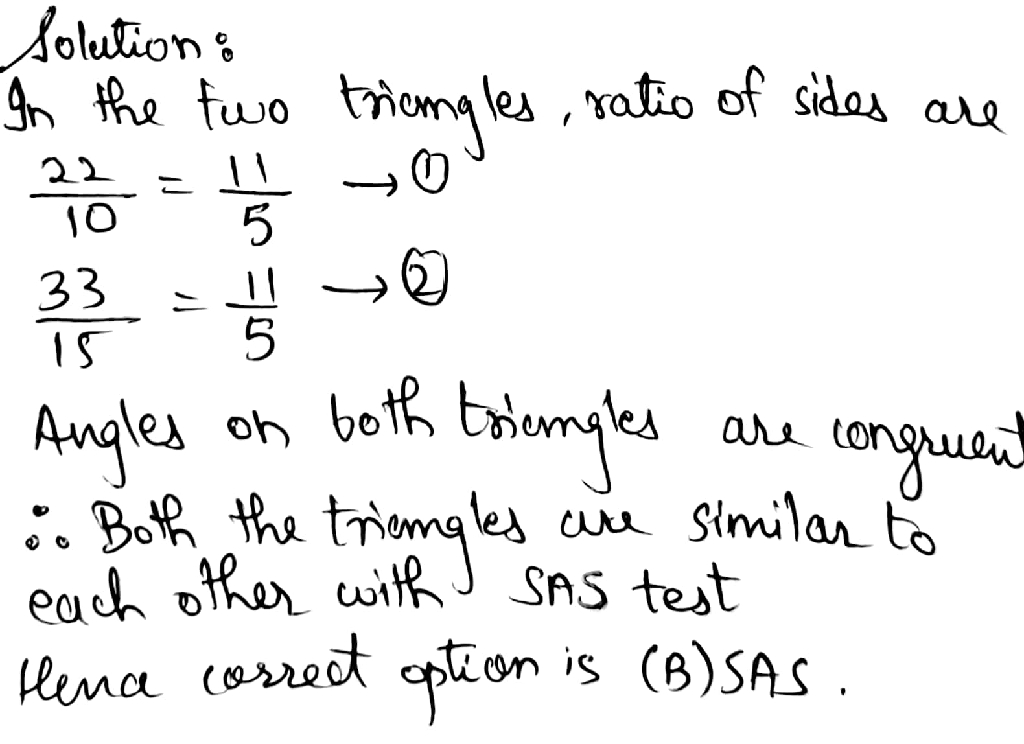 Solution:
In the two triangles, ratio of sides are
22/10 = 11/5 → ①
33/15 = 11/5 → ②
Angles on both triangles are congruent
∴ Both the triangles are similar to
each other with SAS test
Hence correct option is (B) SAS.